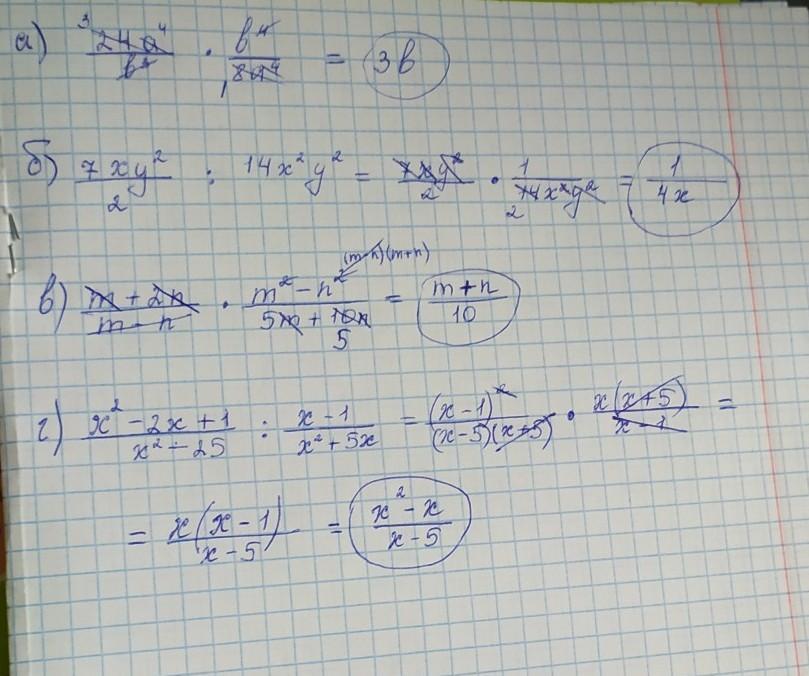 а) 24a⁴/b² · b⁴/8a⁴ = 3b
б) 7xy²/2 : 14x²y² = 7xy²/2 · 1/14x²y² = 1/4x
(m-n)(m+n)
в) m + 2n/m - n · m² - n²/5m + 10n = m + n/10
г) x² - 2x + 1/x² - 25 : x - 1/x² + 5x = (x - 1)²/(x - 5)(x + 5) · x(x + 5)/x - 1 =
= x(x - 1)/x - 5 = x² - x/x - 5